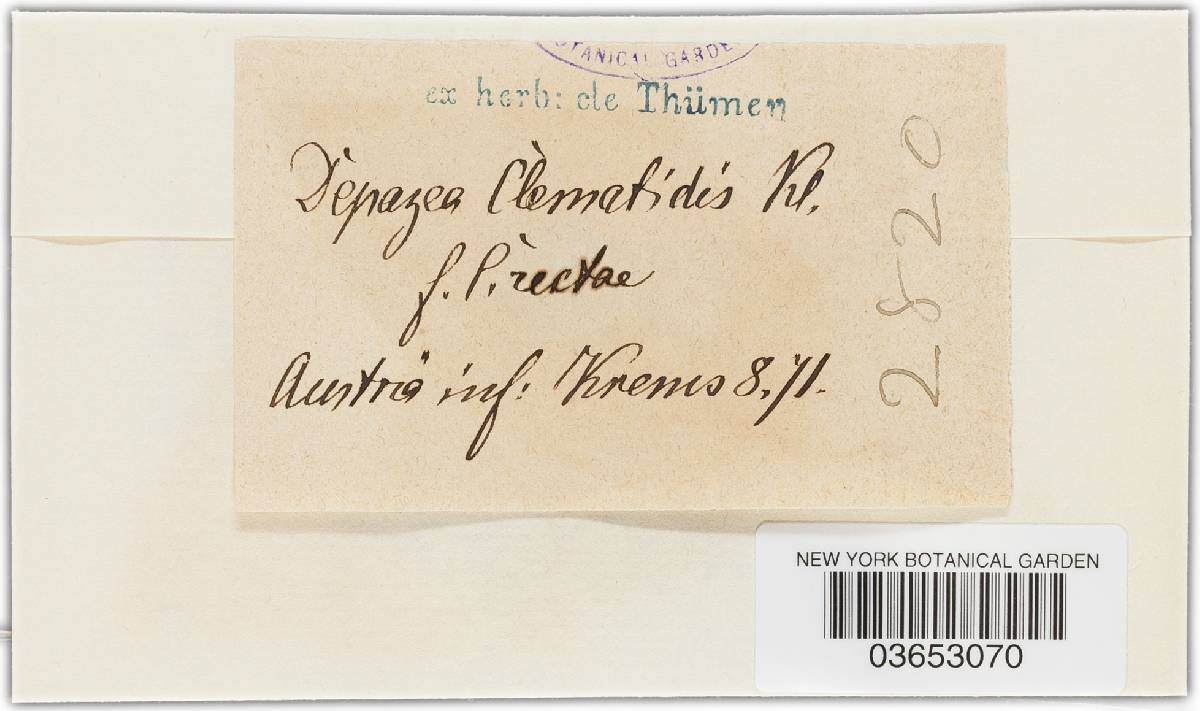 BOTANICAL GARDE
ex herb: de Thümen
Depazea Clematidis Kl.
f. C. rectae
Austria inf: Krems 8.71.
2820
NEW YORK BOTANICAL GARDEN
03653070